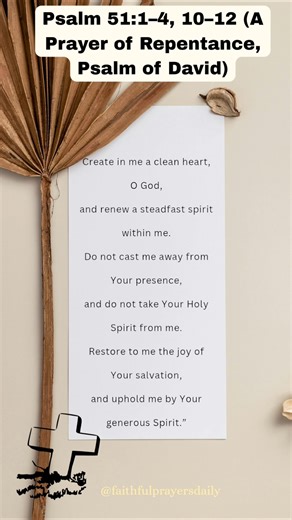 Psalm 51:1–4, 10–12 (A
Prayer of Repentance,
Psalm of David)
Create in me a clean heart,
O God,
and renew a steadfast spirit
within me.
Do not cast me away from
Your presence,
and do not take Your Holy
Spirit from me.
Restore to me the joy of
Your salvation,
and uphold me by Your
generous Spirit.”
@faithfulprayersdaily